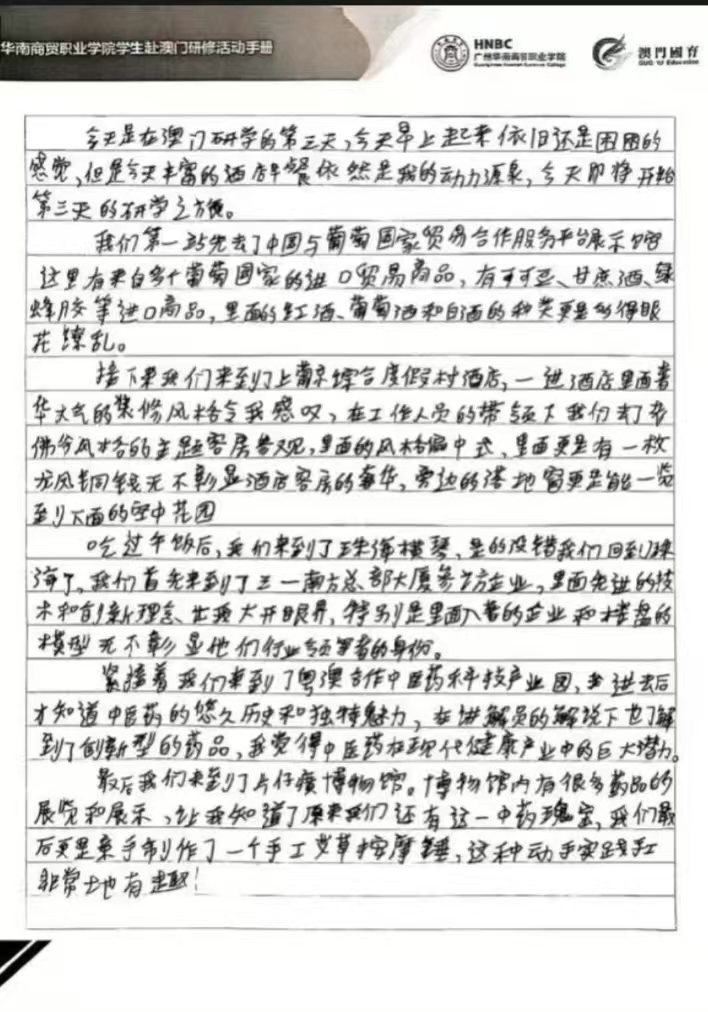 华南商贸职业学院学生赴澳门研修活动手册
HNBC
广州华南商贸职业学院
澳門國育
GUO YU Education
今天是在澳门研学的第三天,今天早上起来依旧还是困困的
感觉,但是今天丰富的酒店早餐依然是我的动力源泉,今天即将开始
第三天的研学之旅。
我们第一站先去了中国与葡萄国家贸易合作服务平台展示馆
这里有来自多个葡萄国家的进口贸易商品,有可可亚、甘蔗酒、绿
蜂胶等进口商品,里面的红酒、葡萄酒和白酒的种类更是多得眼
花缭乱。
接下来我们来到了上葡京综合度假村酒店,一进酒店里面奢
华大气的装修风格令我感叹,在工作人员的带领下我们去了
风格的主题客房参观,里面的风格偏中式,里面更是有一枚
龙凤铜钱无不彰显酒店客房的奢华,旁边的落地窗更是能一览
到下面的空中花园
吃过午饭后,我们来到了珠海横琴,是的没错我们回到珠
海了,我们首先来到了三一南方总部大厦参访企业,里面先进的技
术和创新理念、让我大开眼界,特别是里面入驻的企业和楼盘的
模型无不彰显他们行业领军者的身份。
紧接着我们来到了粤澳合作中医药科技产业园,进去后
才知道中医药的悠久历史和独特魅力,在讲解员的解说下也了解
到了创新型的药品,我觉得中医药在现代健康产业中的巨大潜力。
最后我们来到了片仔癀博物馆。博物馆内有很多药品的
展览和展示,让我知道了原来我们还有这一中药瑰宝,我们最
后更是亲手制作了一个手工艾草按摩锤,这种动手实践
非常地有趣!